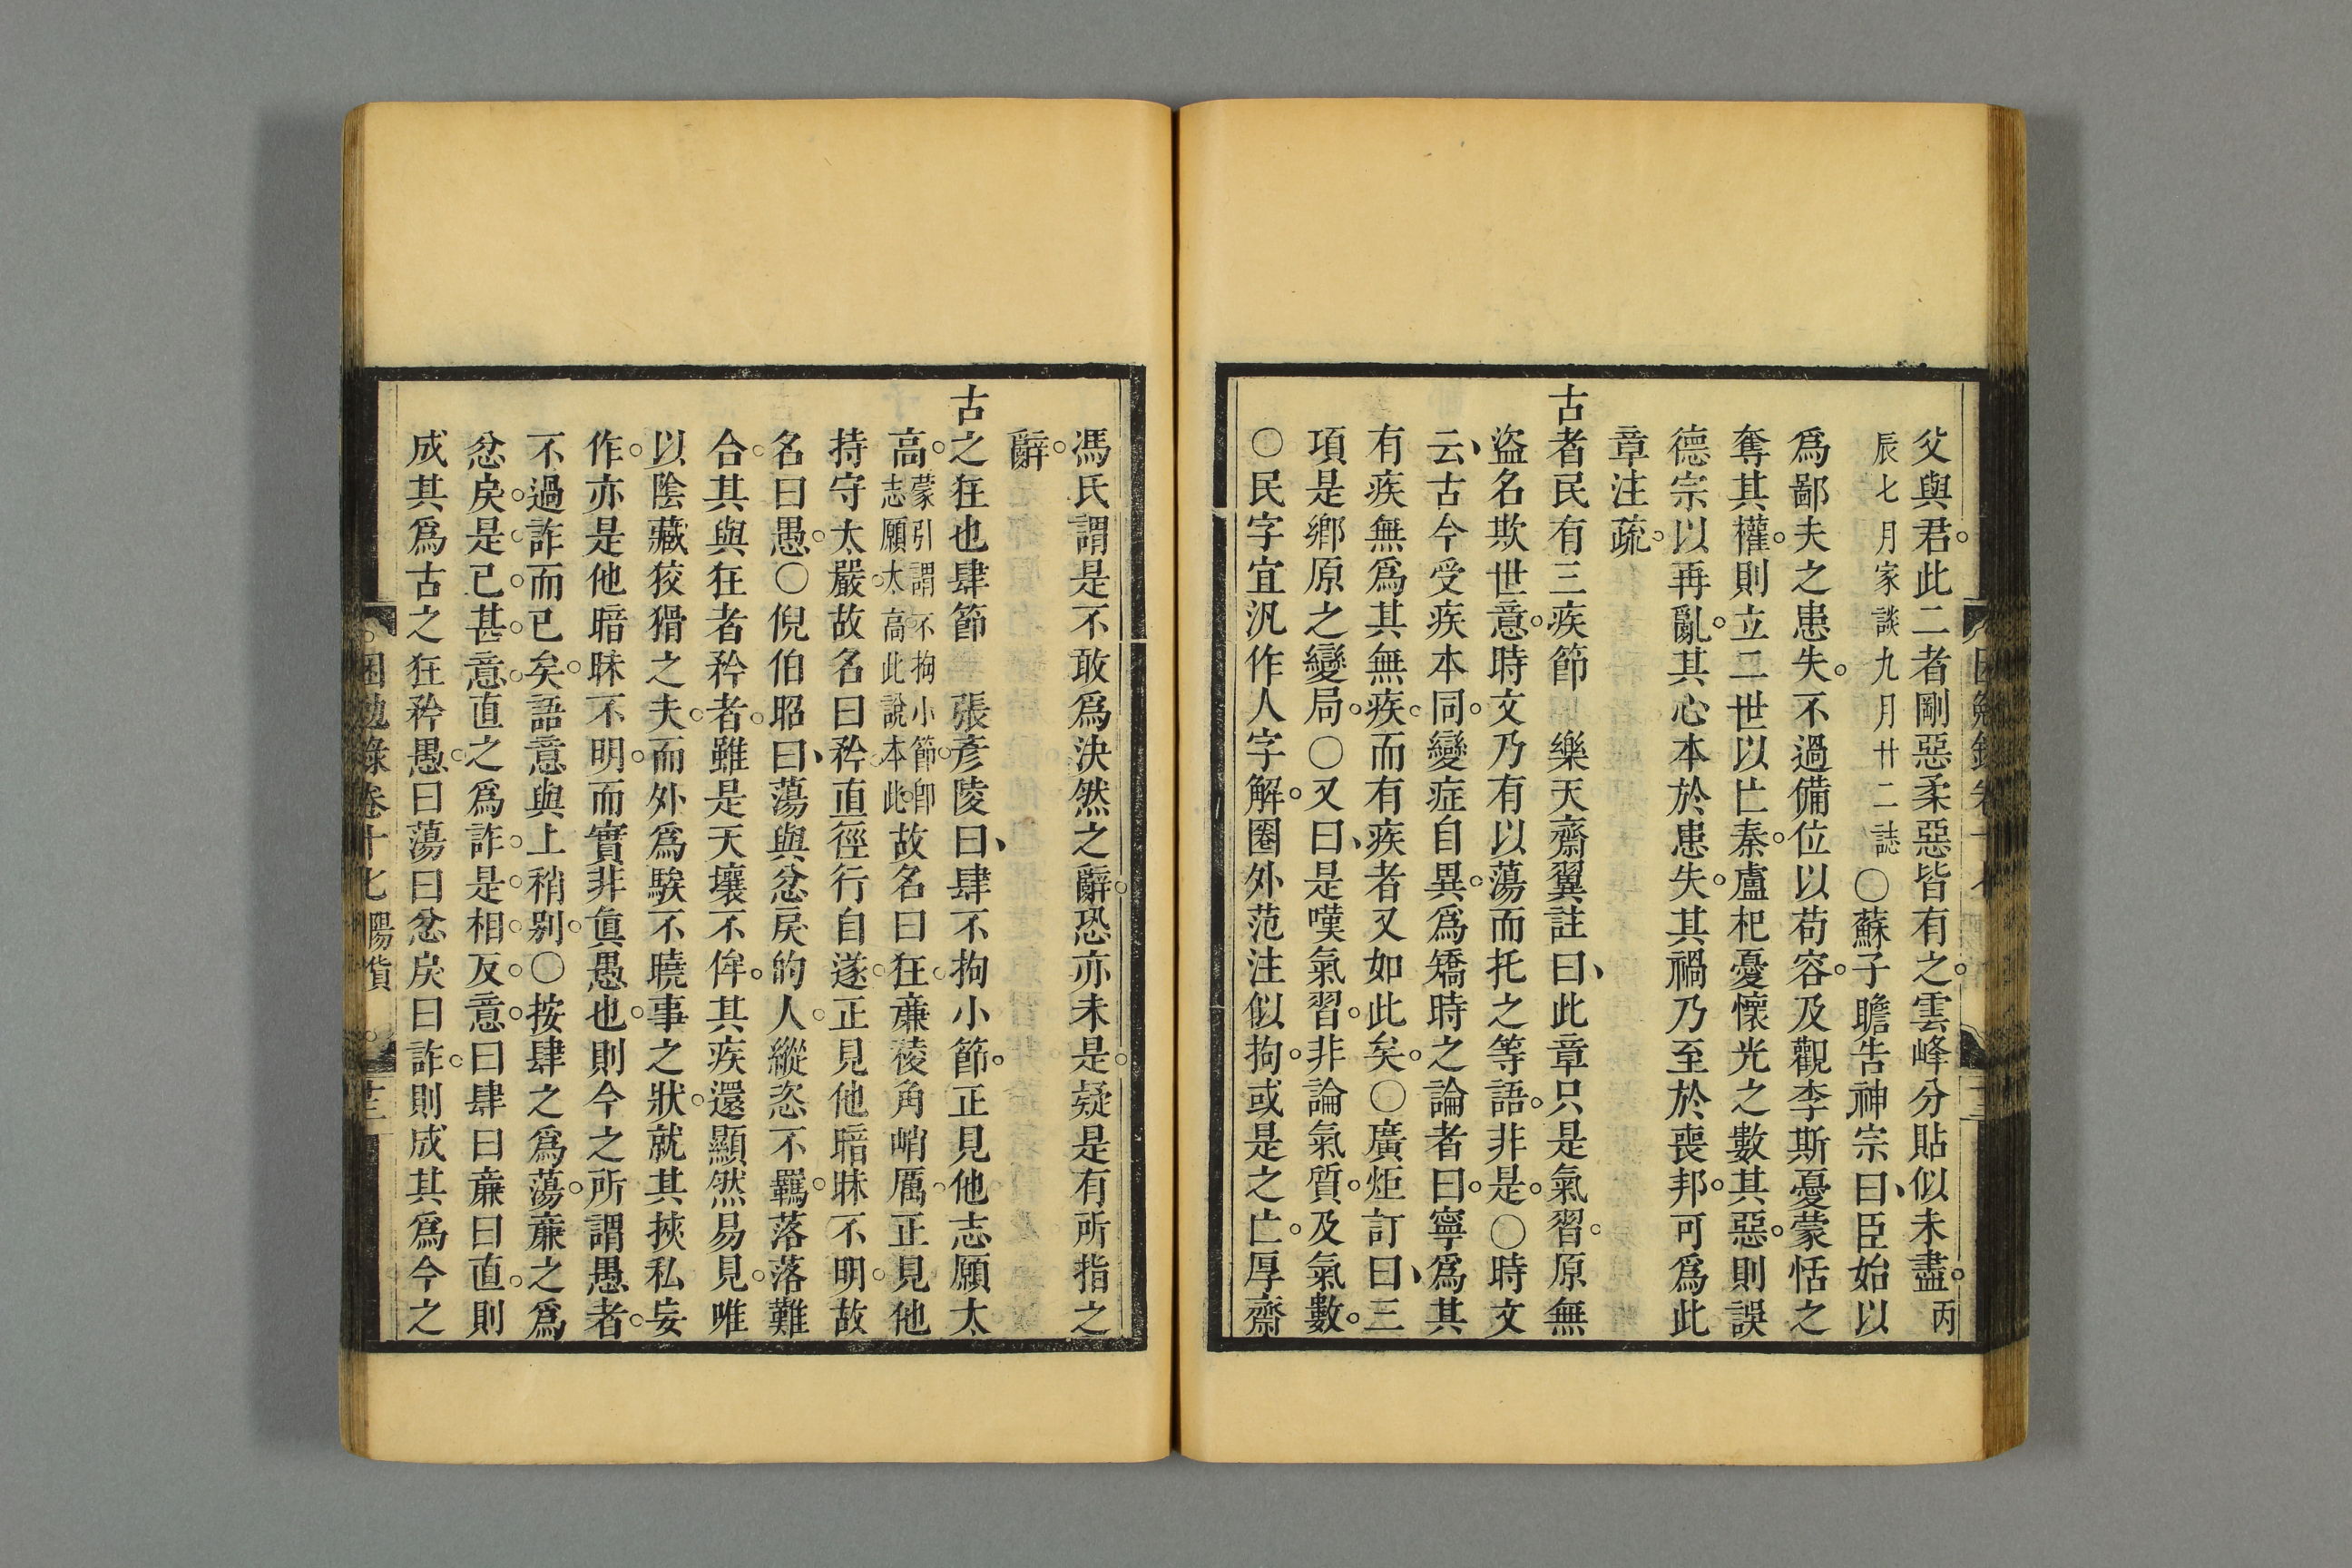 父與君。此二者剛惡柔惡皆有之。雲峰分貼似未盡。丙
辰七月家談九月廿二誌〇蘇子瞻告神宗曰、臣始以
爲鄙夫之患失。不過備位以苟容。及觀李斯憂蒙恬之
奪其權。則立二世以亡秦。盧杞憂懷光之數其惡。則誤
德宗以再亂。其心本於患失。其禍乃至於喪邦。可爲此
章注疏。
古者民有三疾節 樂天齋翼註曰、此章只是氣習。原無
盜名欺世意。時文乃有以蕩而托之等語。非是。〇時文
云、古今受疾本同。變症自異。爲矯時之論者曰。寧爲其
有疾無爲其無疾。而有疾者又如此矣。〇廣炬訂曰、三
項是鄉原之變局。〇又曰、是嘆氣習。非論氣質。及氣數。
〇民字宜汎作人字解。圈外范注似拘。或是之亡。厚齋
馮氏謂是不敢爲決然之辭。恐亦未是。疑是有所指之
辭。
古之狂也肆節 張彥陵曰、肆不拘小節。正見他志願太
高。蒙引謂不拘小節。卽志願太高。此說本此。故名曰狂。廉稜角峭厲。正見他
持守太嚴。故名曰矜。直徑行自遂。正見他暗昧不明。故
名曰愚。〇倪伯昭曰、蕩與忿戾的人。縱恣不羈。落落難
合。其與狂者矜者。雖是天壤不侔。其疾還顯然易見。唯
以陰藏狡猾之夫。而外爲騃不曉事之狀。就其挾私妄
作。亦是他暗昧不明。而實非眞愚也。則今之所謂愚者。
不過詐而已矣。語意與上稍别。〇按肆之爲蕩。廉之爲
忿戾。是已甚意。直之爲詐。是相反意。曰肆曰廉曰直。則
成其爲古之狂矜愚。曰蕩曰忿戾曰詐。則成其爲今之
困勉錄卷十七 陽貨 廿三